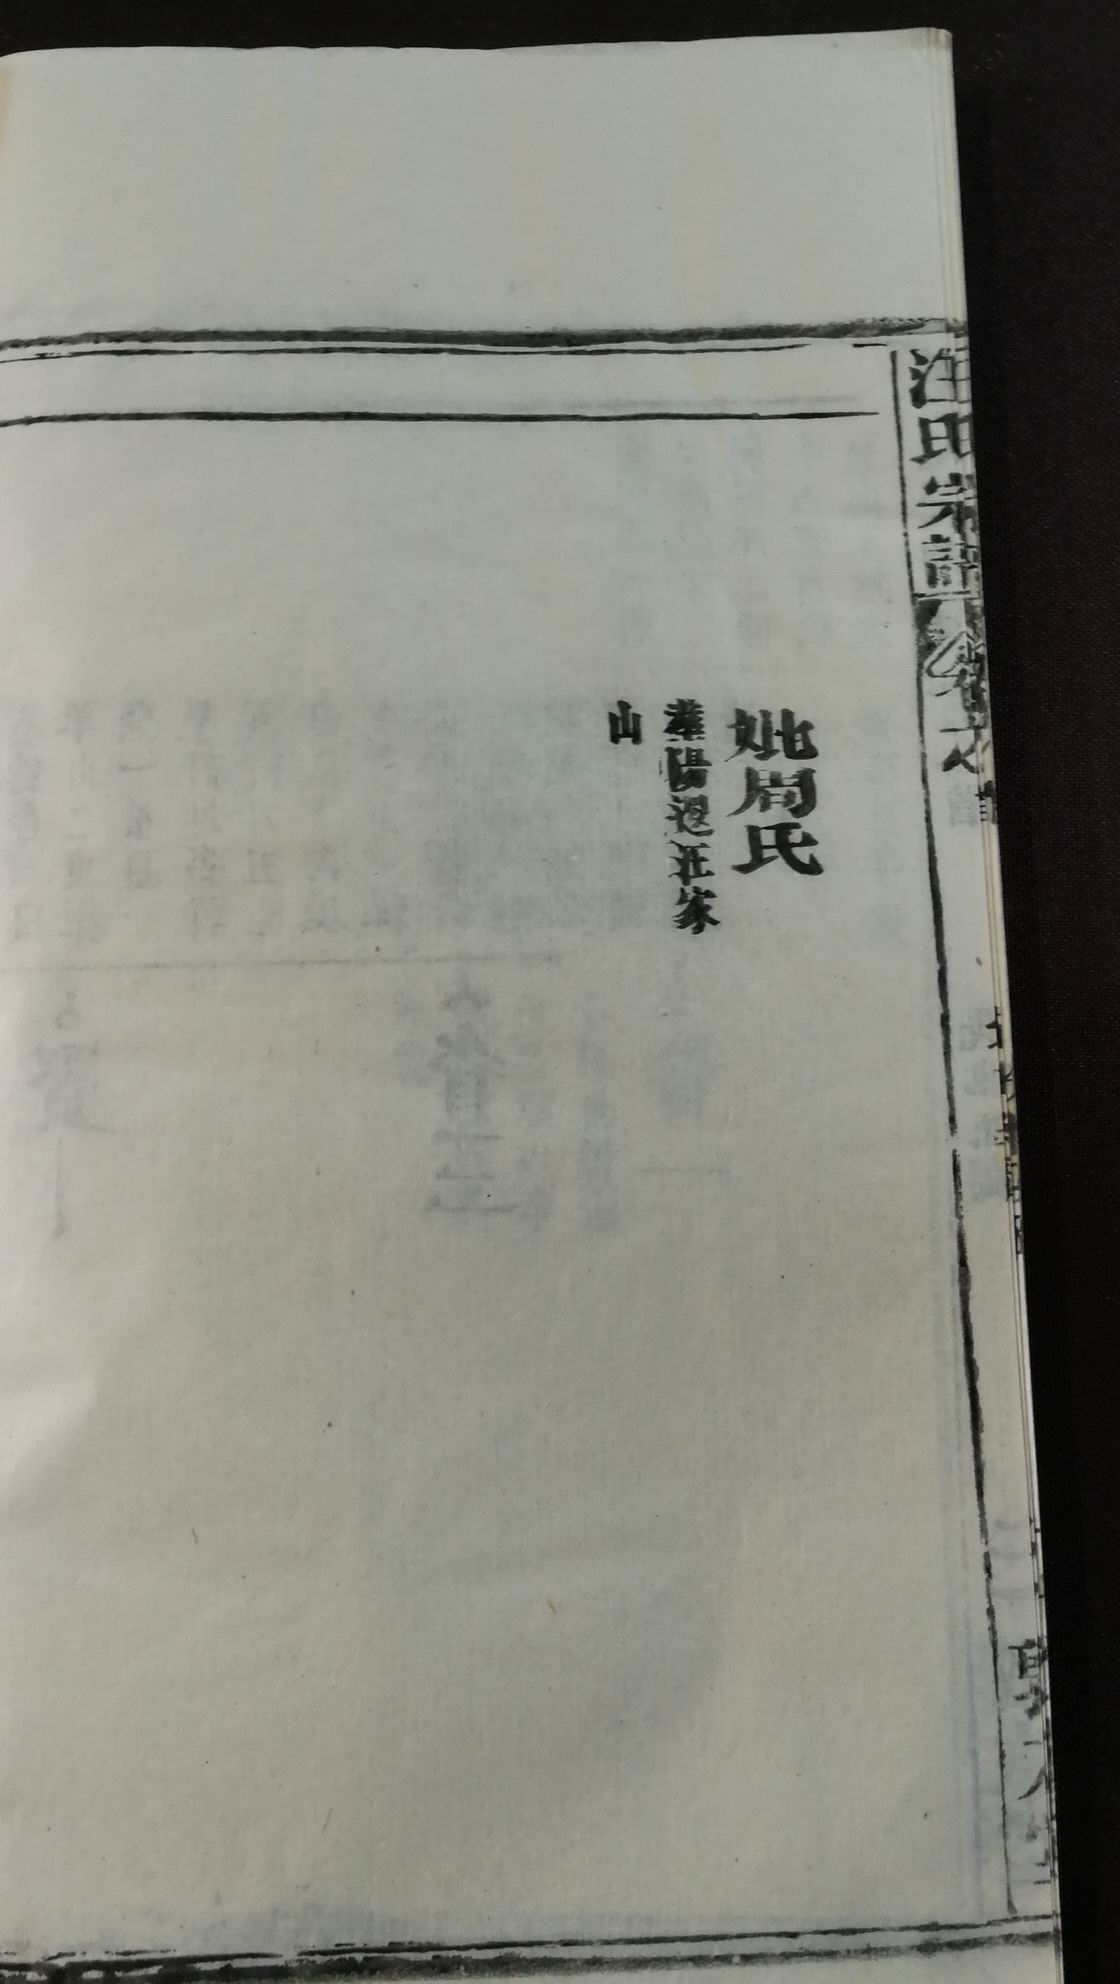 汪氏宗譜
卷之首
妣周氏
葬陽邏汪家
山